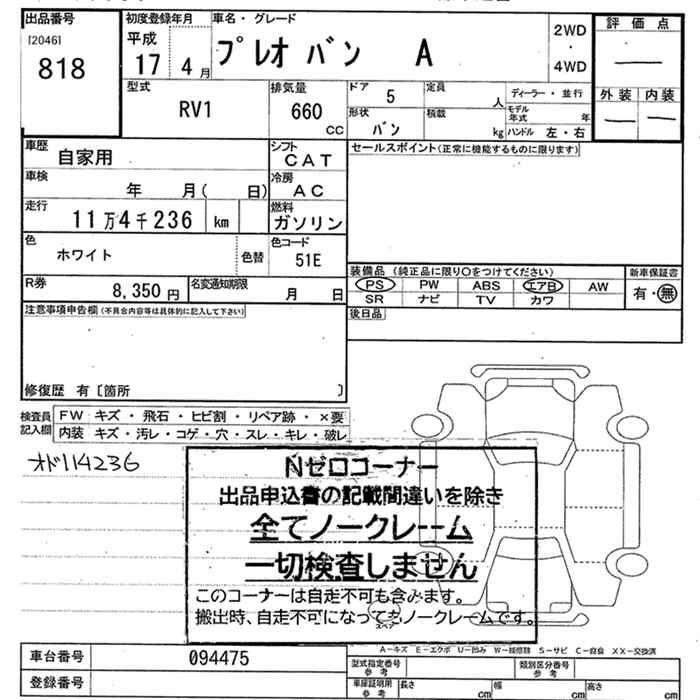 出品番号
[2046]
818
初度登録年月
平成
17 4 月
車名・グレード
プレオ バン A
2WD
・
4WD
評価点
外装 内装
型式
RV1
排気量
660
CC
ドア 5
定員 人
形状 バン
積載 kg
ディーラー・並行
モデル年式 年
ハンドル 左・右
車歴 自家用
シフト
CAT
セールスポイント(正常に機能するものに限ります)
車検 年 月( 日)
冷房
AC
走行 11万4千236 km
燃料
ガソリン
色 ホワイト
色替
色コード
51E
装備品 (純正品に限り○をつけてください)
新車保証書
PS PW ABS エアB AW
SR ナビ TV カワ
有・無
R券 8,350 円
名変通知期限 月 日
後日品
注意事項申告欄(不具合内容等は具体的に記入して下さい)
修復歴 有〔箇所 〕
検査員記入欄
FW キズ・飛石・ヒビ割・リペア跡・×要
内装 キズ・汚レ・コゲ・穴・スレ・キレ・破レ
オド114236
Nゼロコーナー
出品申込書の記載間違いを除き
全てノークレーム
一切検査しません
このコーナーは自走不可も含みます。
搬出時、自走不可になってもノークレームです。
スペア
A−キズ E−エクボ U−凹み W−補修跡 S−サビ C−腐食 XX−交換済
車台番号 094475
登録番号
型式指定番号
参考
類別区分番号
参考
車庫証明用
参考
長さ cm 幅 cm 高さ cm